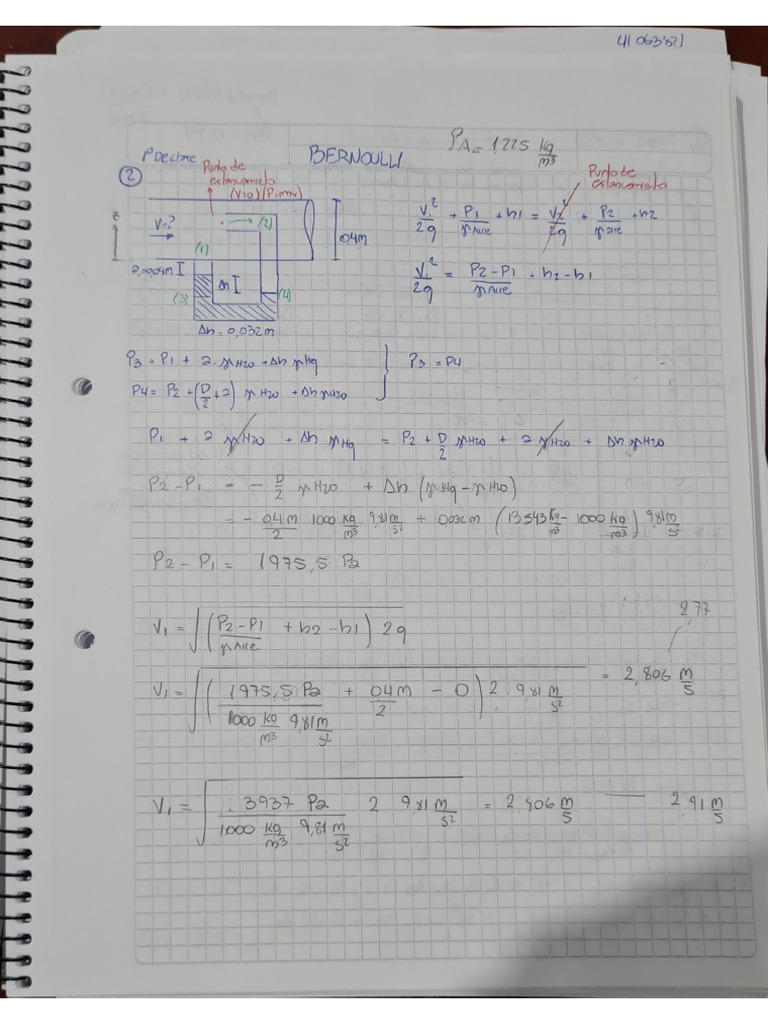 BERNOULLI
ρA = 1.225 kg/m³
2
Punto de
estancamiento
(V=0) (P=max)
Punto de
estancamiento
V=?
(1)
(2)
0.4m
z
(3)
(4)
Δh
Δh = 0,032m
V1²/2g + P1/γAire + h1 = V2²/2g + P2/γaire + h2
V1²/2g = P2-P1/γAire + h2-h1
P3 = P1 + 2.γH2O + Δh γHg
P3 = P4
P4 = P2 + (D/2 + 2) γH2O + Δh γH2O
P1 + 2 γH2O + Δh γHg = P2 + D/2 γH2O + 2 γH2O + Δh γH2O
P2-P1 = - D/2 γH2O + Δh (γHg - γH2O)
= - 0.4m/2 1000 kg/m³ 9,81 m/s² + 0.032m (13543 kg/m³ - 1000 kg/m³) 9,81 m/s²
P2-P1 = 1975,5 Pa
2,77
V1 = √((P2-P1/γAire + h2-h1) 2g)
V1 = √((1975,5 Pa/1000 kg/m³ 9,81 m/s² + 0.4m/2 - 0) 2 . 9,81 m/s²) = 2,806 m/s
V1 = √(.3937 Pa/1000 kg/m³ 9,81 m/s² 2 9,81 m/s²) = 2,806 m/s — 2,91 m/s